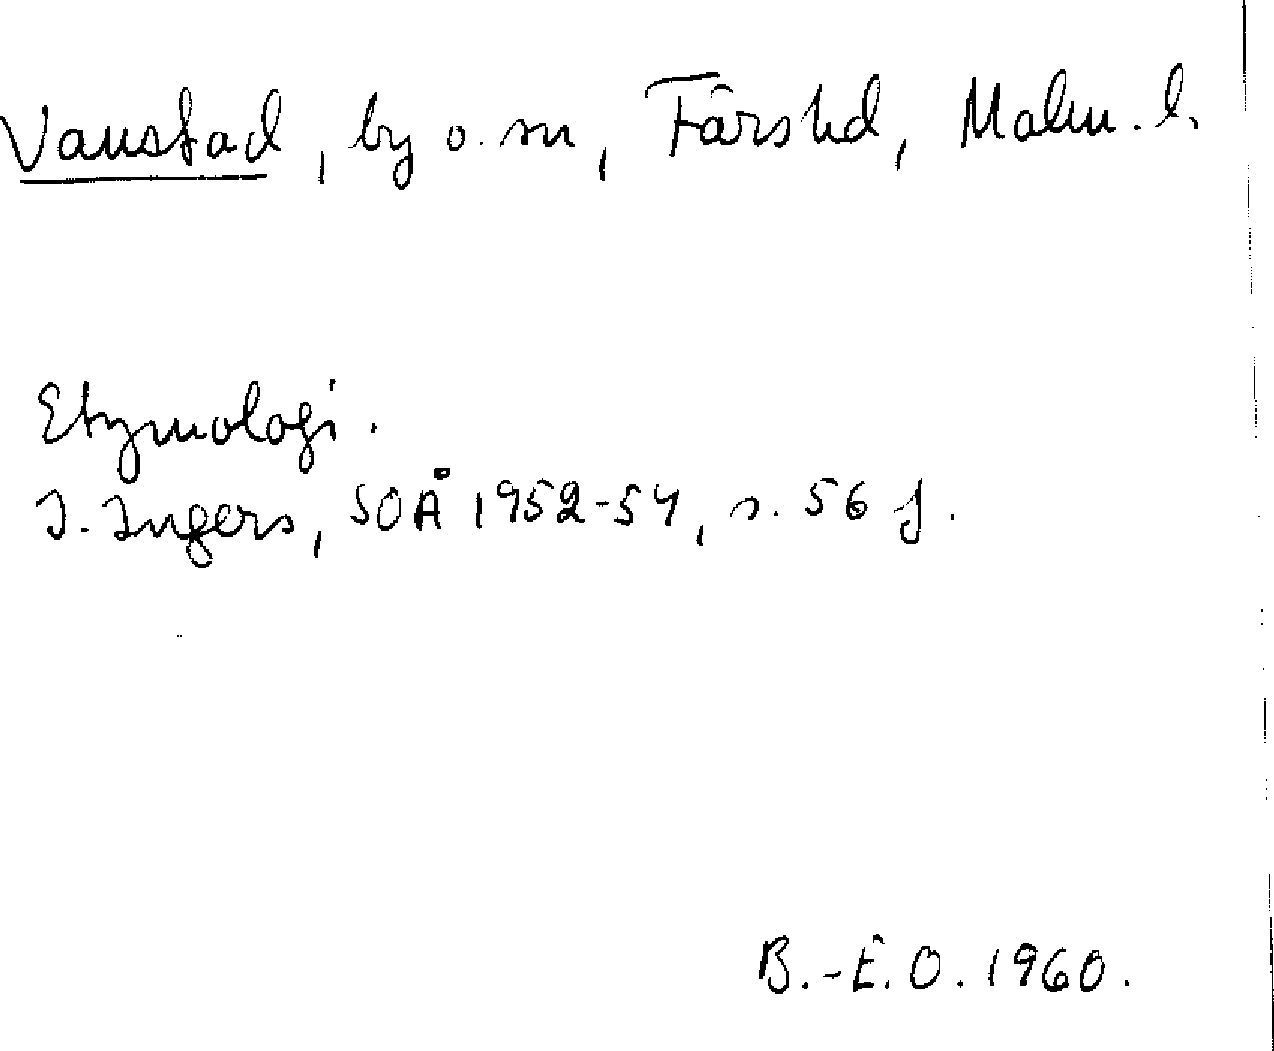 Vanstad, by o. sn, Färs hd, Malm. l.
Etymologi.
I. Ingers, SOÅ 1952-54, s. 56 f.
B.-E. O. 1960.